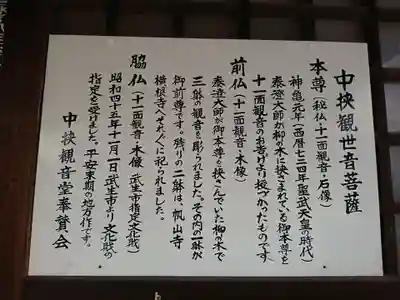 中挾観世音菩薩
本尊(秘仏・十一面観音・石像)
神亀元年(西暦七二四年聖武天皇の時代)
泰澄大師が柳の木に挾まされている御本尊を
十一面観音のお告げより授かったものです
前仏(十一面観音・木像)
泰澄大師が御本尊を挾んでいた柳の木で
三躰の観音を彫られました。その内の一躰が
御前尊です。残りの二躰は、帆山寺
横根寺へそれぞれに祀られました。
脇仏(十一面観音・木像 武生市指定文化財)
昭和四十五年十一月一日武生市より文化財の
指定を受けました。平安末期の地方作です。
中挾観音堂奉賛会